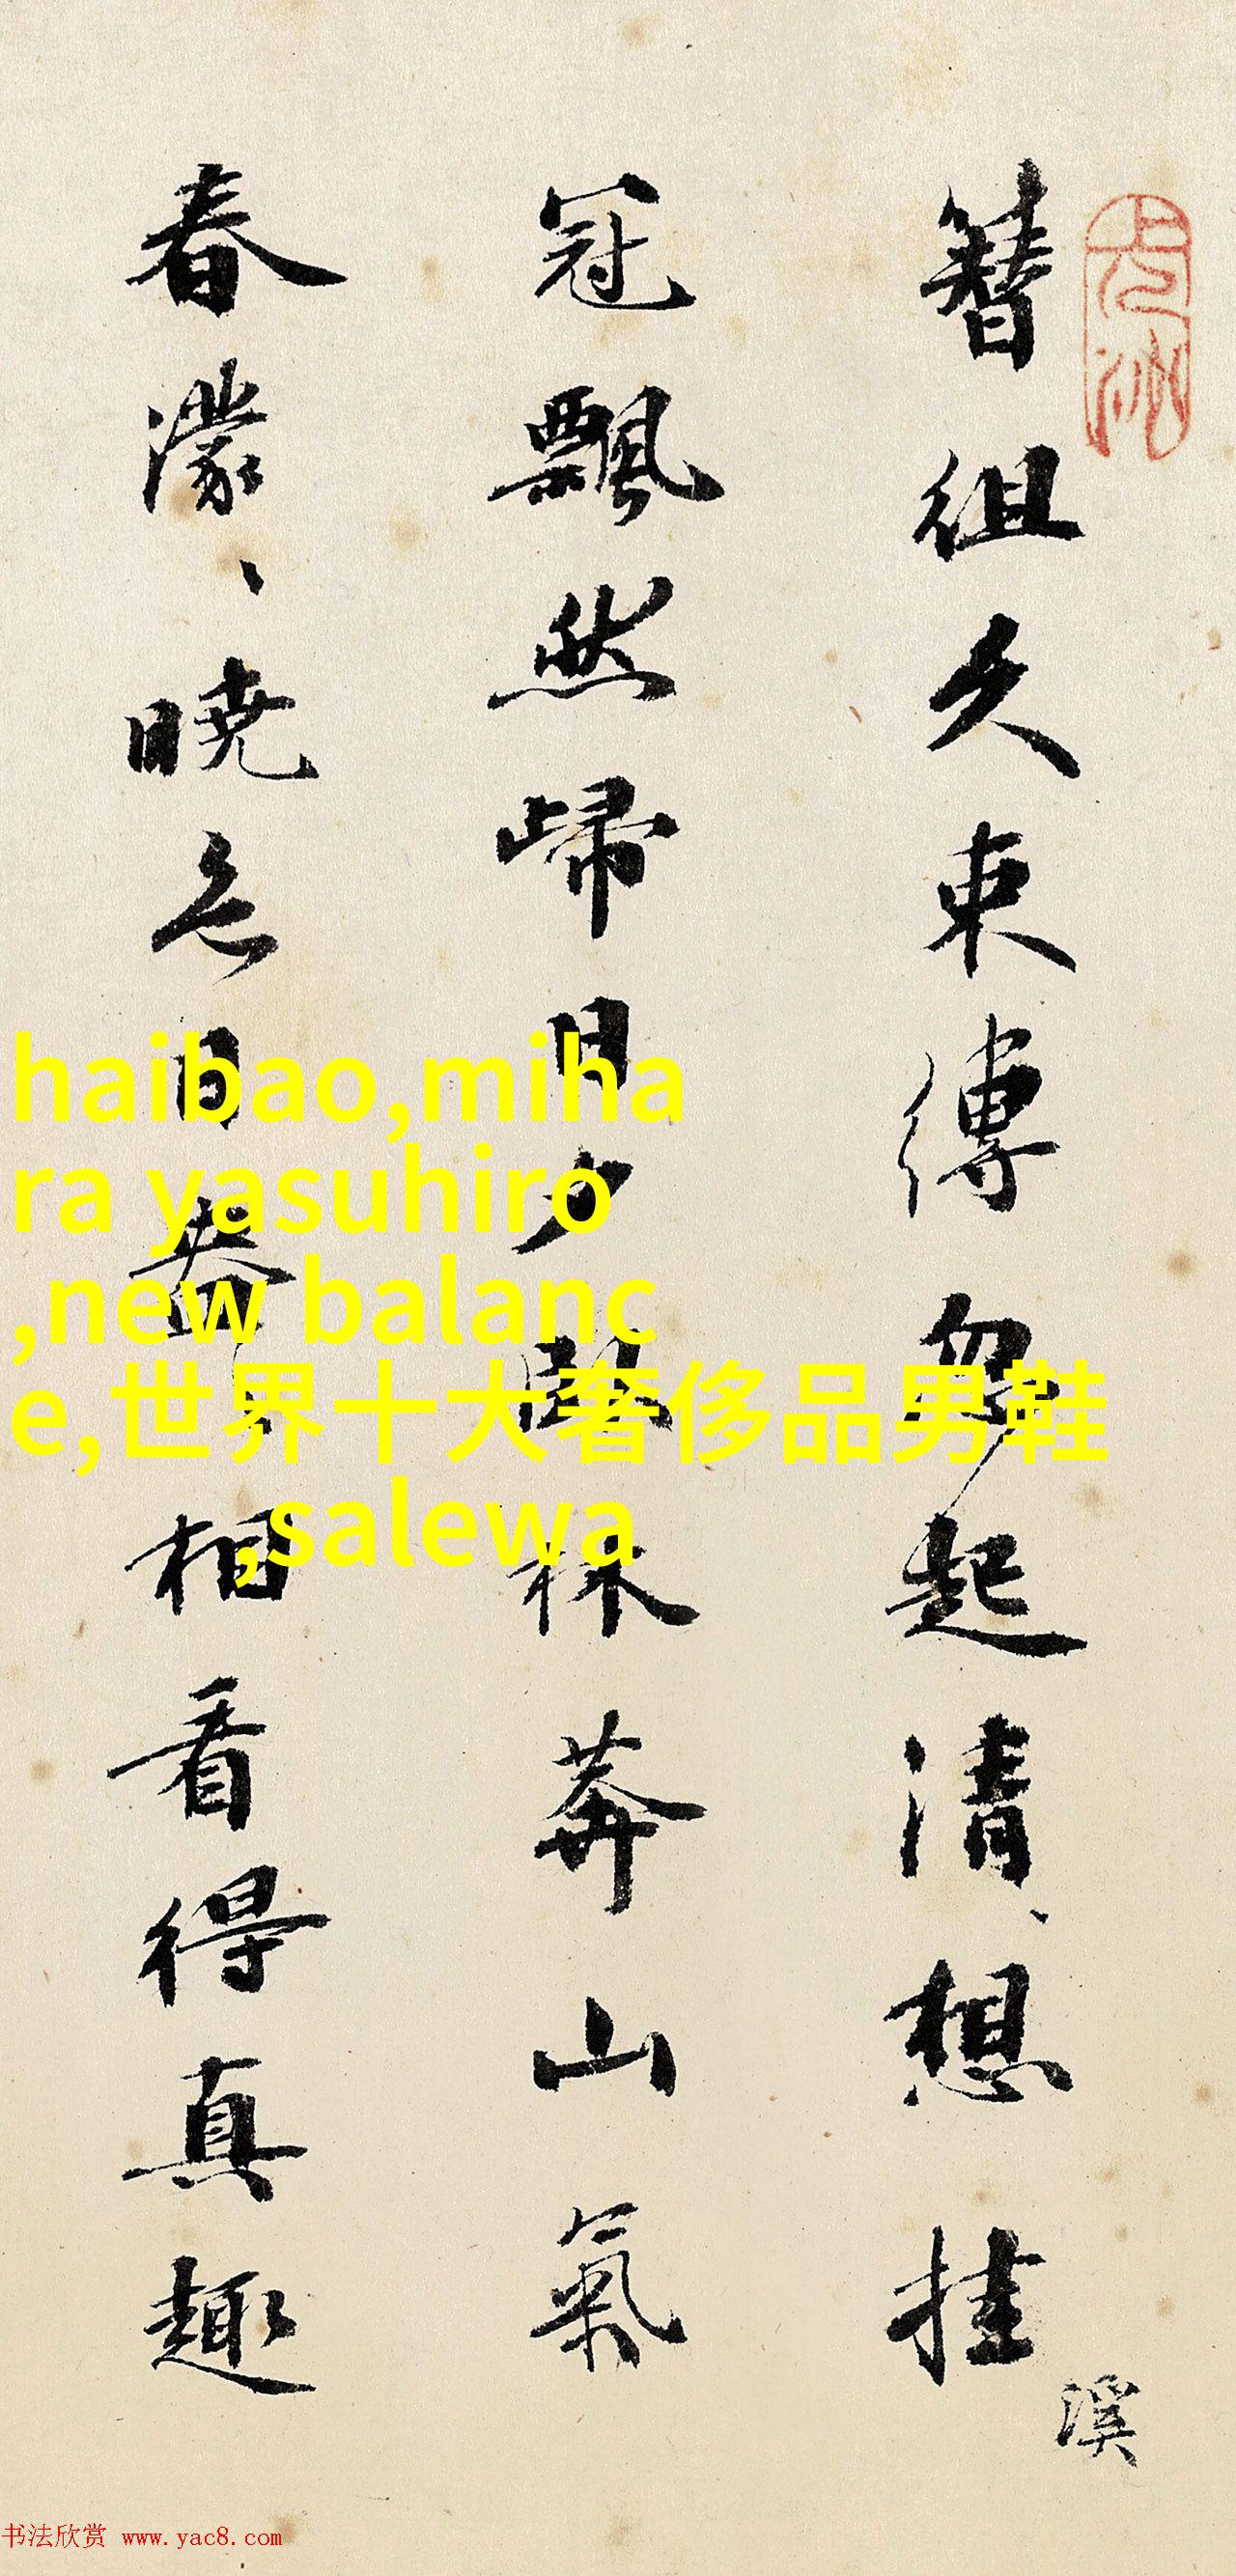 簪組久束縛忽起清、想挂
溪
冠飄然歸日夕林莽山氣
春濛、曉色日盎、相看得真趣
haibao,miha
ra yasuhiro
,new balanc
e,世界十大奢侈品男鞋
,salewa
书法欣赏 www.yac8.com